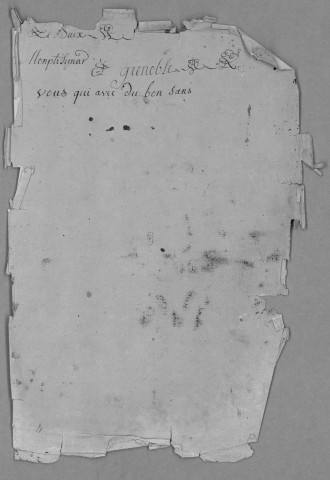 Le Buix
Montelimar
Et grenoble
vous qui avec du bon sans